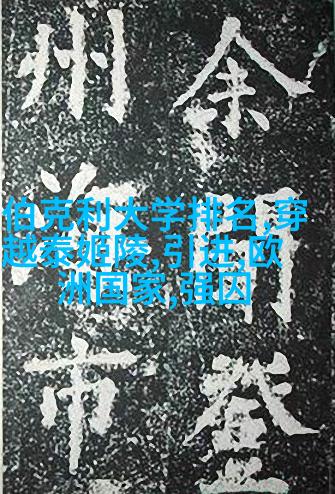 余登
州市
伯克利大学排名,穿
越泰姬陵,引进,欧
洲国家,强囚